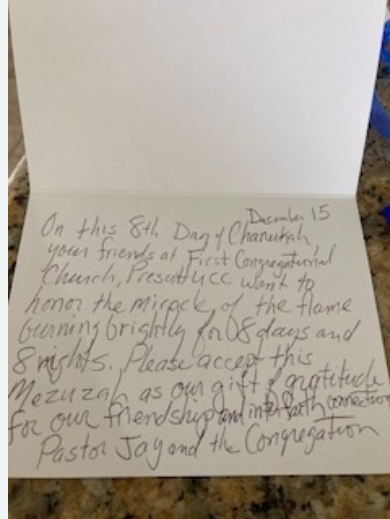 December 15
On this 8th Day of Chanukah,
your friends at First Congregational
Church, Prescott UCC want to
honor the miracle of the flame
burning brightly for 8 days and
8 nights. Please accept this
Mezuzah as our gift of gratitude
for our friendship and interfaith connection
Pastor Jay and the Congregation